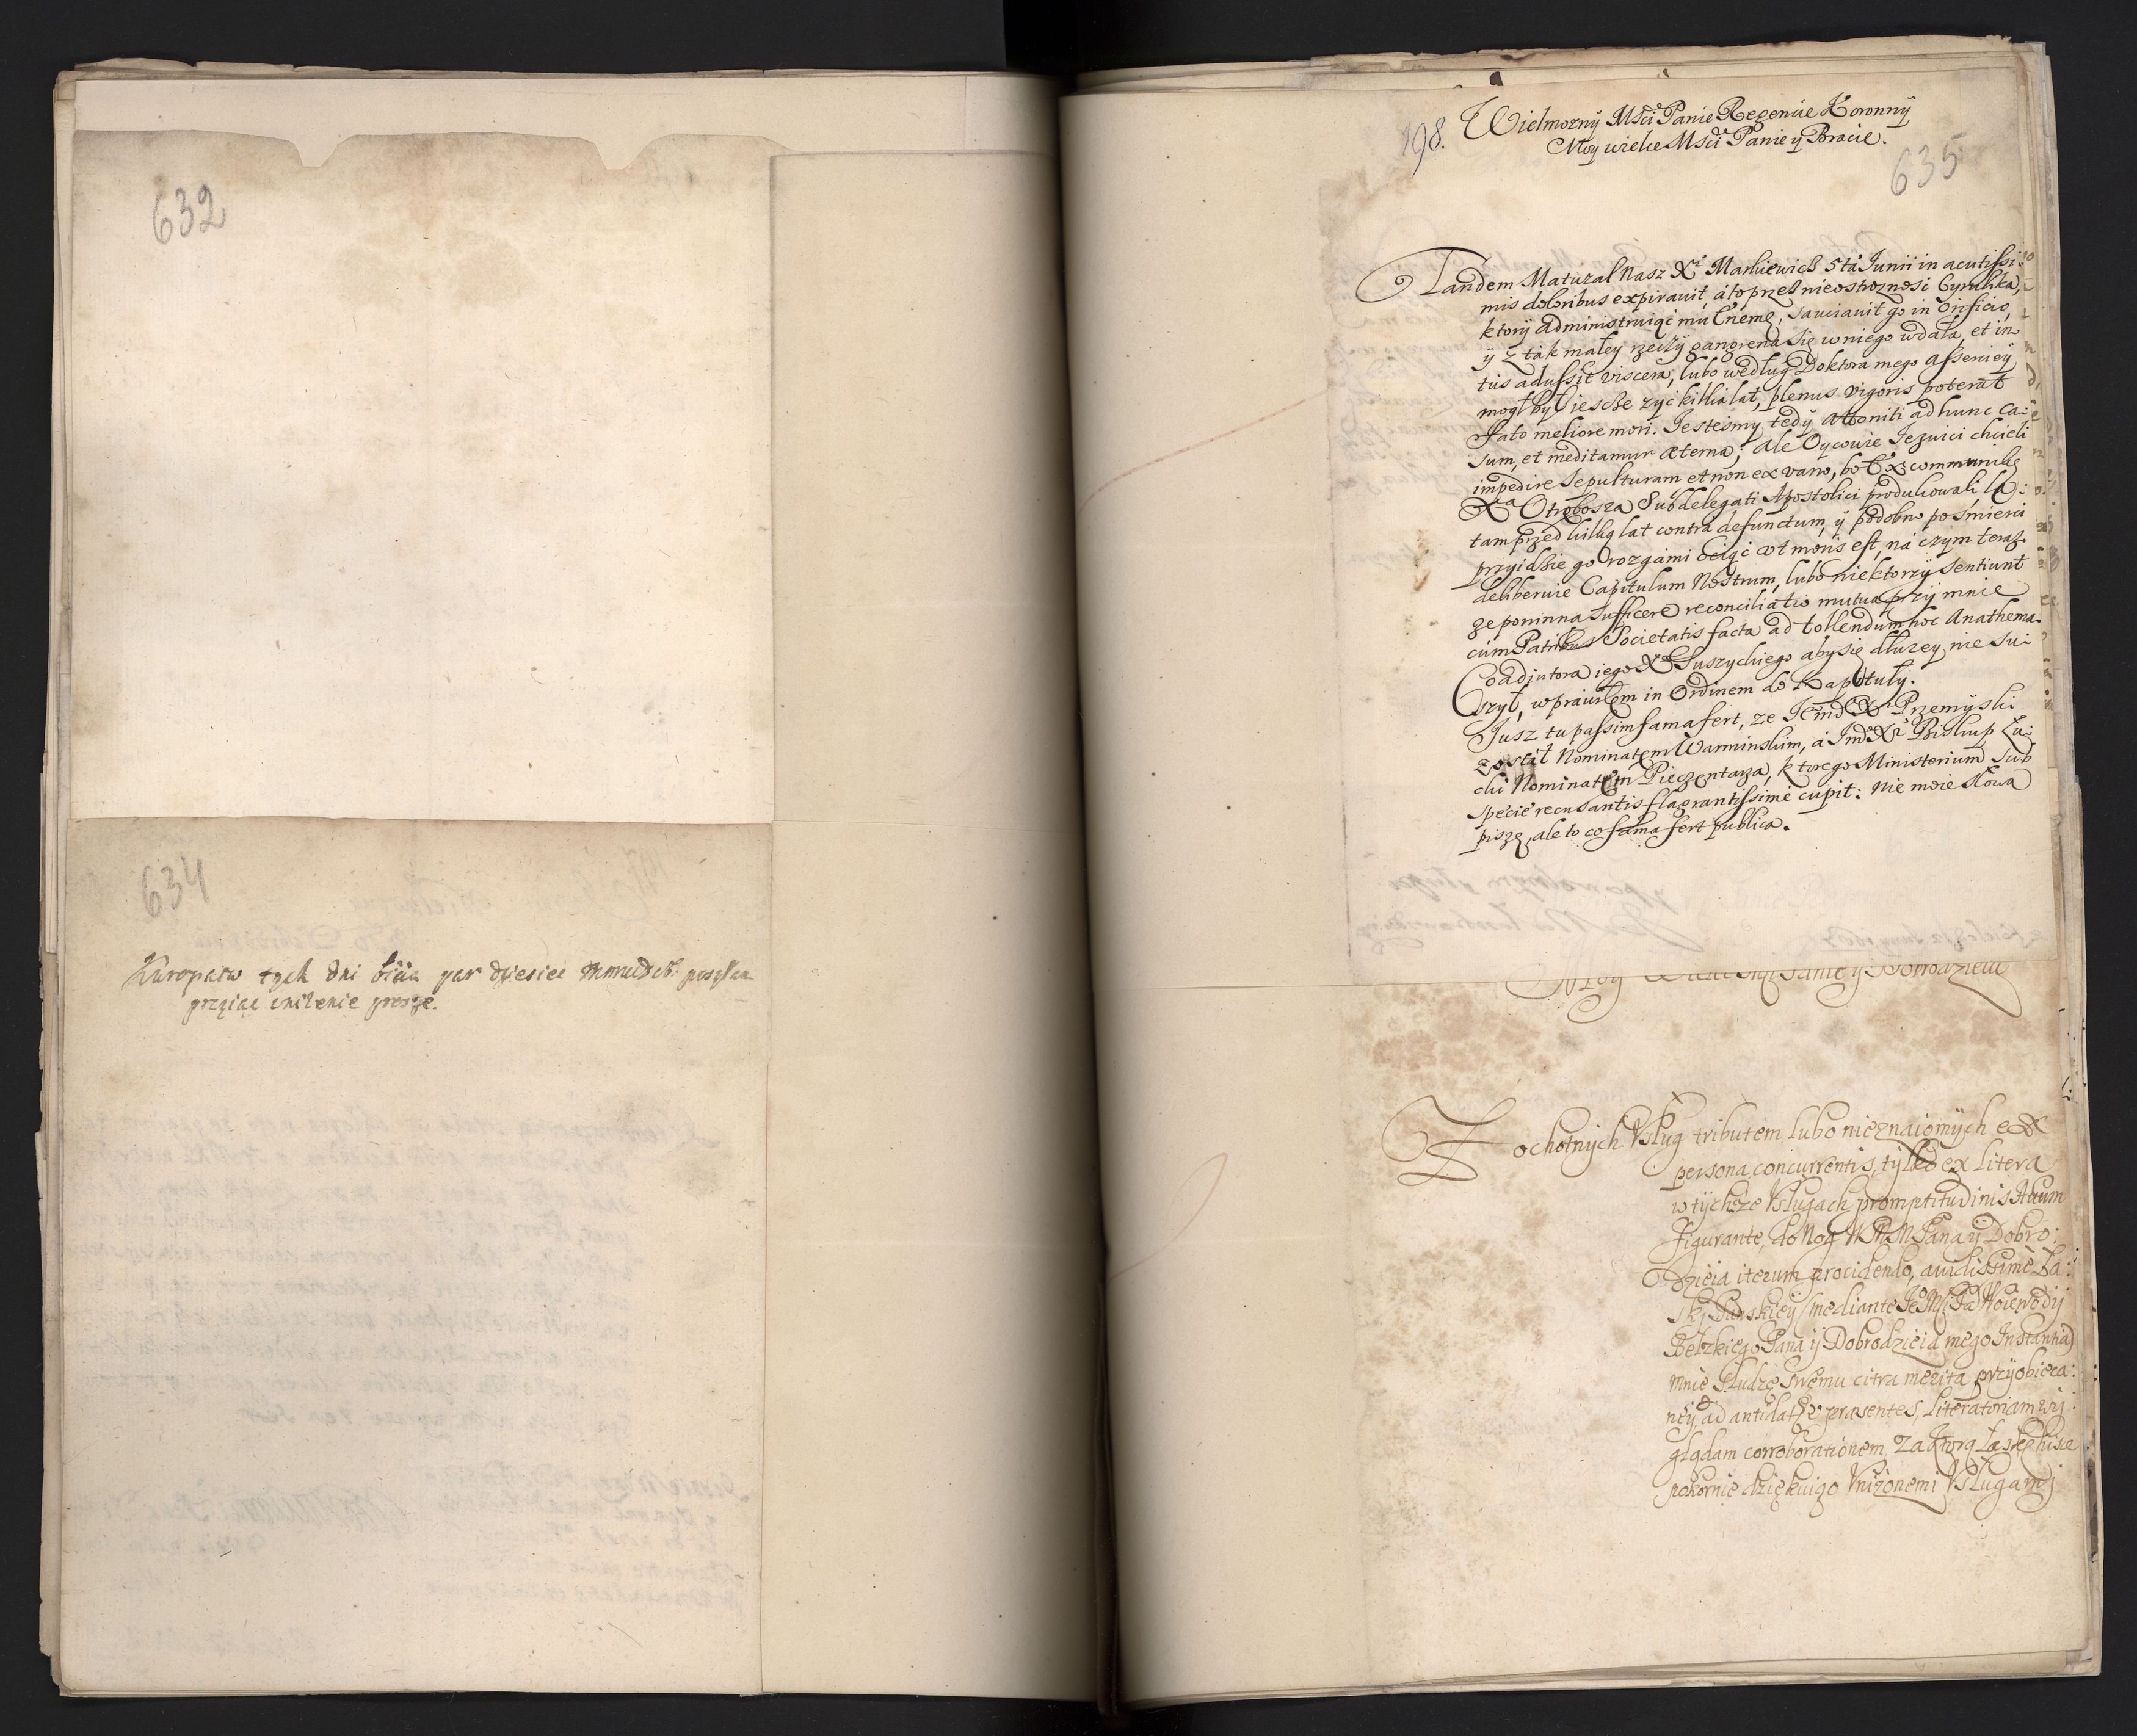 632
634
Kuropatw tych dni
par dziesięć
proszę.
198.
Wielmozny Msci Panie Regencie Koronny
Moy wielce Msci Panie y Bracie.
635
Tandem Matuzal Nasz Xt Markiewicz 5ta Junii in acutissi:
mis doloribus expiravit, á to przes nieostroznosc Cyrulika,
ktory administruiąc mu Enemę, sauciavit go in Orificio,
ÿ z tak małey rzeczy gangrena się w niego wdała, et in
tus adussit viscera, lubo według Doktora mego asserciey
mogł był iescze zyć kilka lat, plenus vigoris poterat
Fato meliore mori. Jestesmy tedy attoniti ad hunc ca:
sum, et meditamur æterna; Ale Oycowie Jezuici chcieli
impedire Sepulturam et non ex vano, bo Excommunikę
Xa Otrębosza Subdelegati Apostolici produkowali, la:
tam przed kilką lat contra defunctum, ÿ podobno po smierci
przyidzie go rozgami ociąć ut moris est, ná czym teraz
deliberuie Capitulum Nostrum, lubo niektorzy sentiunt
ze powinna sufficere reconciliatio mutua przy mnie
cum Patribus Societatis facta ad tollendum hoc Anathema.
Coadjutora iego Xa Suszyckiego aby się dłuzey nie su:
szył, wprawiłem in Ordinem do Kapituły.
Jusz tu passim fama fert, ze Jemść Xt Przemyski
został Nominatem Warminskim, á Jmść Xt Biskup Łu:
cki Nominatem Pieczentarza, ktorego Ministerium sub
specie recusantis flagrantissime cupit: Nie moie słowa
piszę, ale to co fama fert publica.
Moy Panie y Dobrodzieiu
Z ochotnych Vsług tributem lubo nieznaiomych ex
persona concurrentis, tylko ex litera
w tychże Vsługach promptitudinis
figurante, do Nog W M M Pana ÿ Dobro:
dzieia iterum procidendo, avidissime Ła:
ski Panskiey mediante Woiewody
Bełzkiego Pana ÿ Dobrodzieia mego Instantia
mnie Słudze swemu citra merita przyobieca:
ney, ad antidat præsentes, literatoriam wy:
glądam corroborationem, za ktorą
pokornie dziękuię Vniżonemi Vsługami